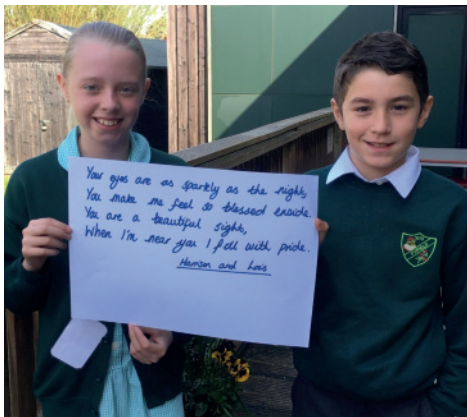 Your eyes are as sparkly as the night,
You make me feel so blessed inside.
You are a beautiful sight,
When I'm near you I fell with pride.
Harrison and Lois